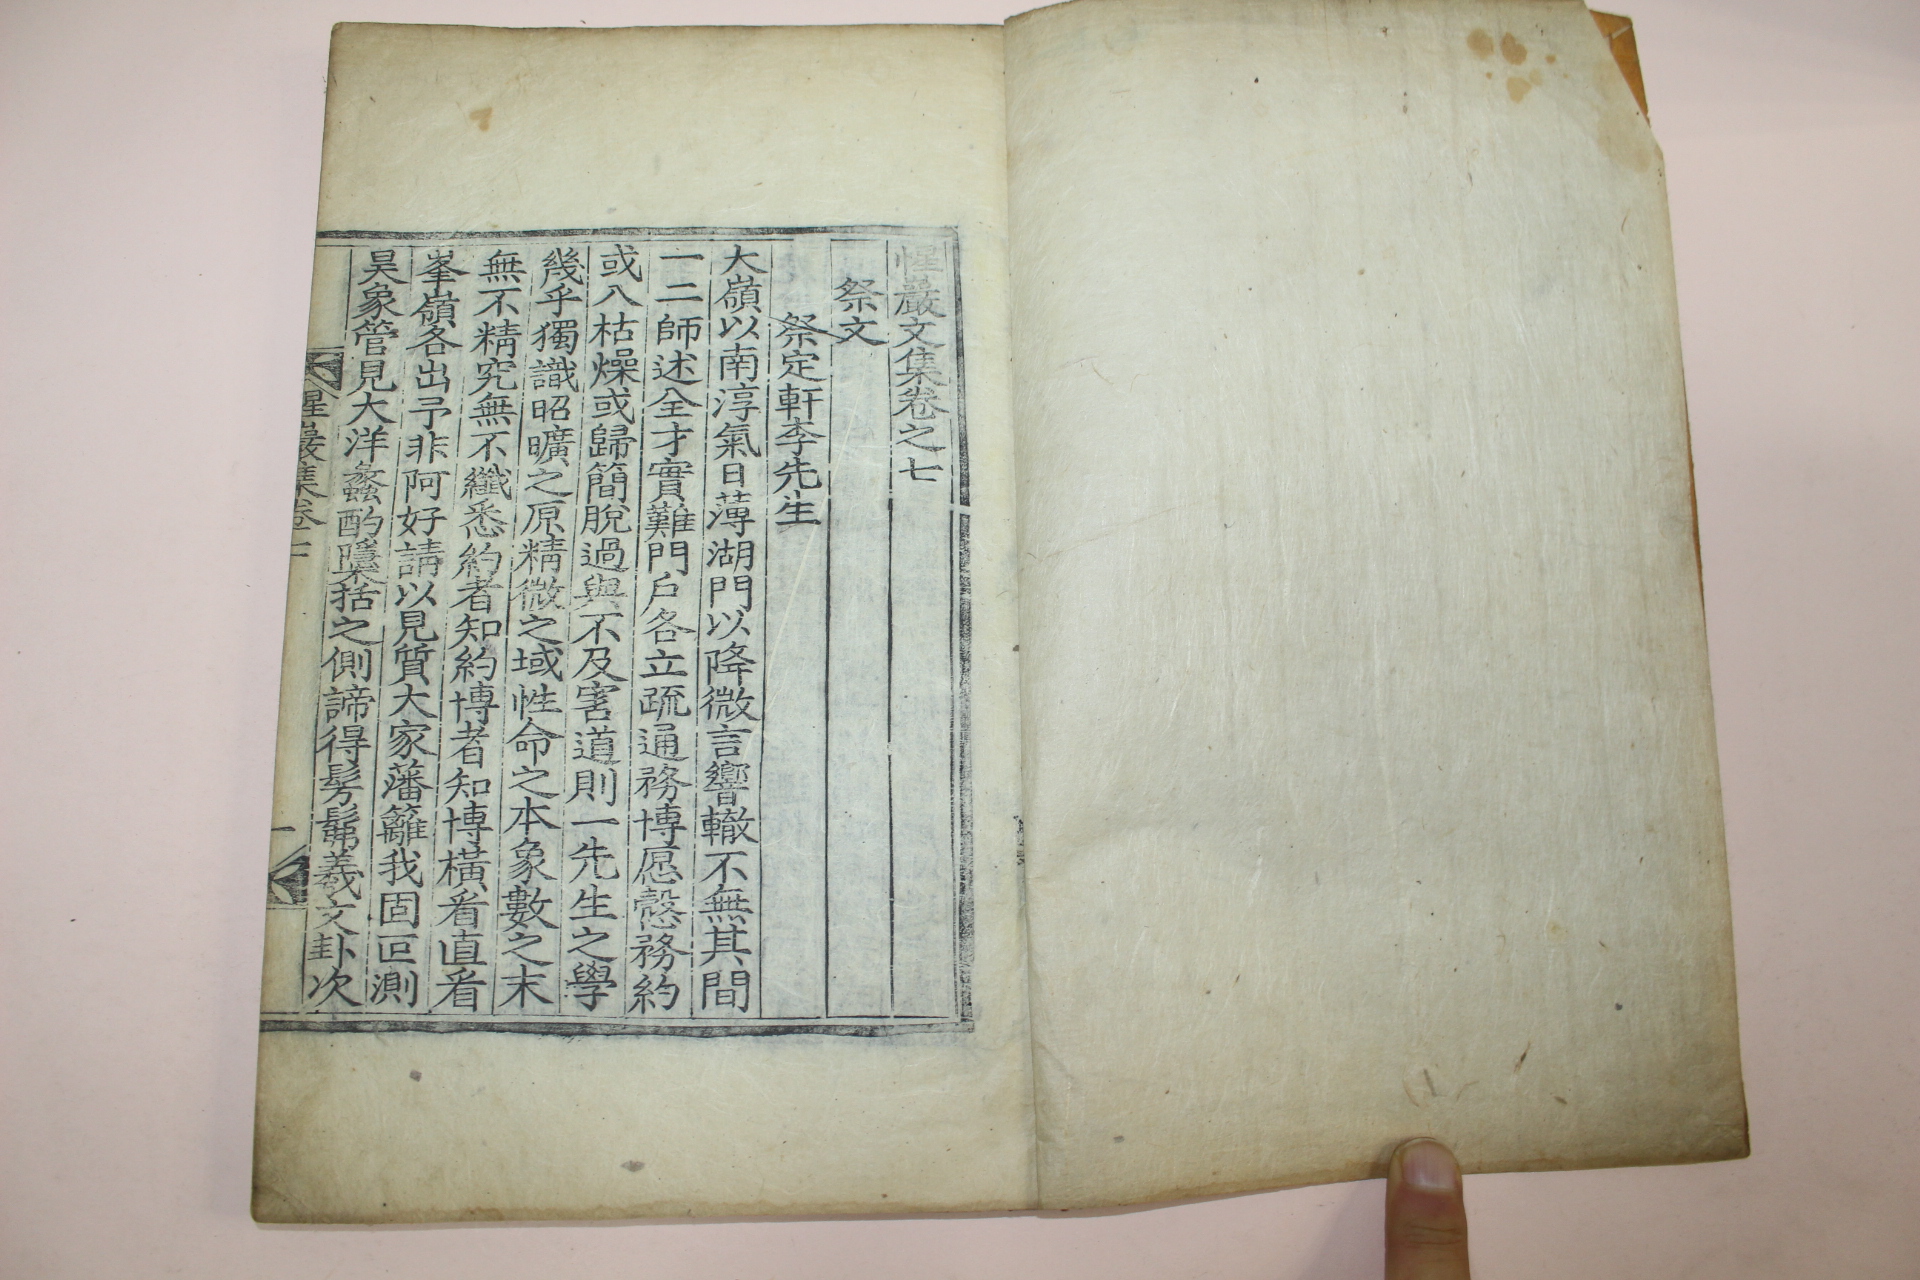 惺巖文集卷之七
祭文
祭定軒李先生
大嶺以南淳氣日薄湖門以降微言響轍不無其間
一二師述全才實難門戶各立疏通務博愿慤務約
或入枯燥或歸簡脫過與不及害道則一先生之學
幾乎獨識昭曠之原精微之域性命之本象數之末
無不精究無不纖悉約者知約博者知博橫看直看
峯嶺各出予非阿好請以見質大家藩籬我固叵測
昊象管見大洋蠡酌隱括之側諦得髣髴羲文卦次
惺巖集卷七
一